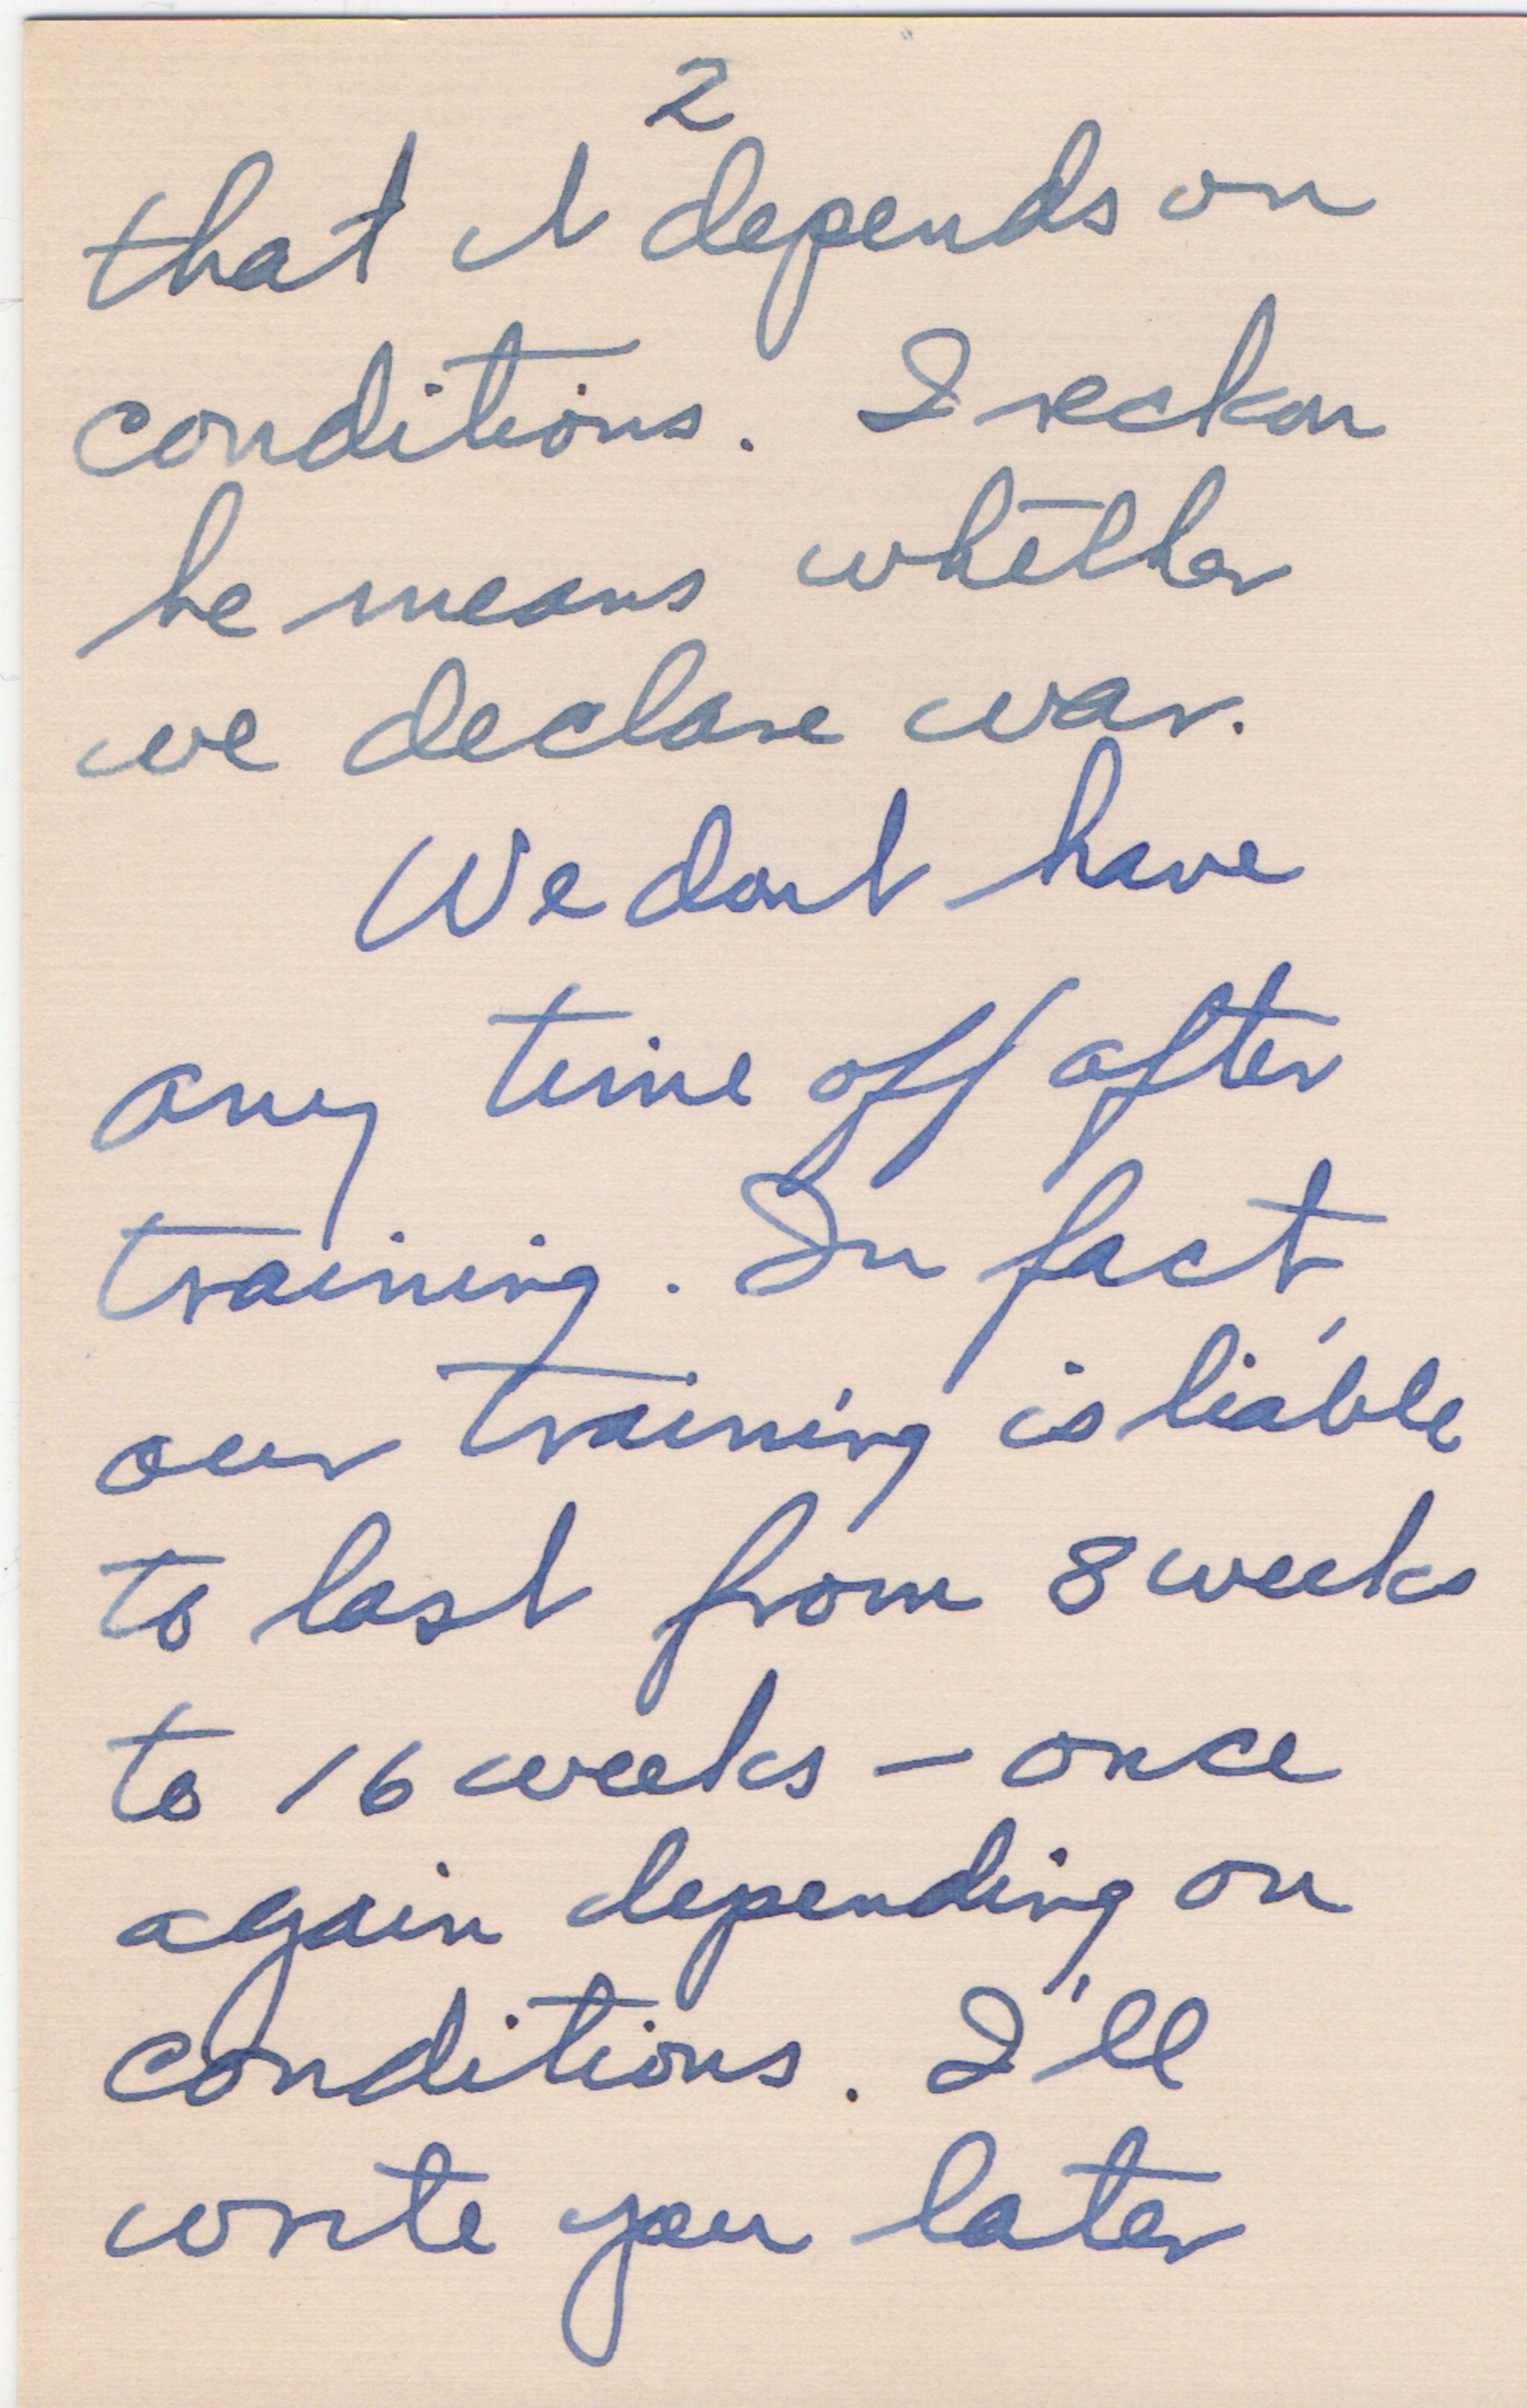 2
that it depends on
conditions. I reckon
he means whether
we declare war.
We dont have
any time off after
training. In fact,
our training is liable
to last from 8 weeks
to 16 weeks - once
again depending on
conditions. I'll
write you later